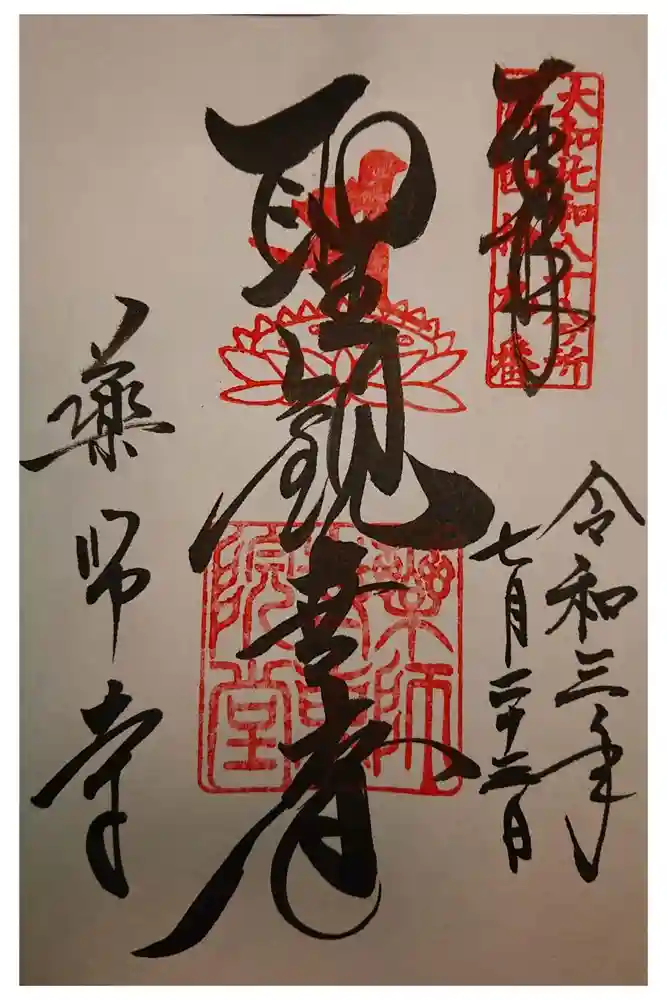 奉拝
大和北部八十八ヶ所
令和三年
七月二十三日
聖観世音
薬師寺